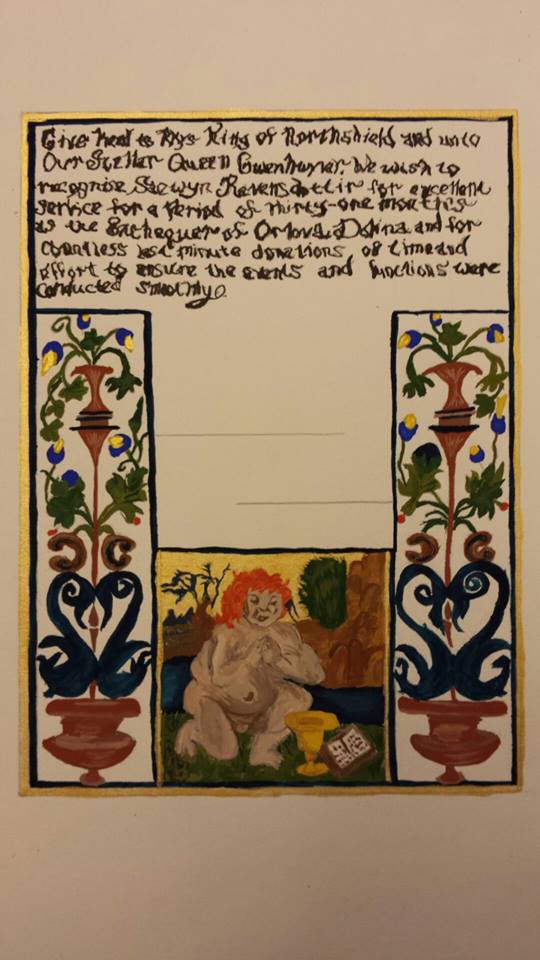 Give heed to Rhys King of Northshield and unto
Our Stellar Queen Gwenhwyvar. We wish to
recognize Saewyn Ravensdottir for excellent
service for a Period of thirty-one months
as the Exchequer of and for
countless last minute donations of time and
effort to ensure the events and functions were
conducted smoothly.